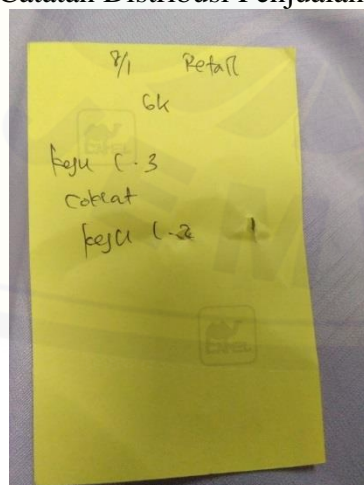 Catatan Distribusi Penjualan
8/1 Retail
6k
keju C. 3
Coklat
keju C. 2 1